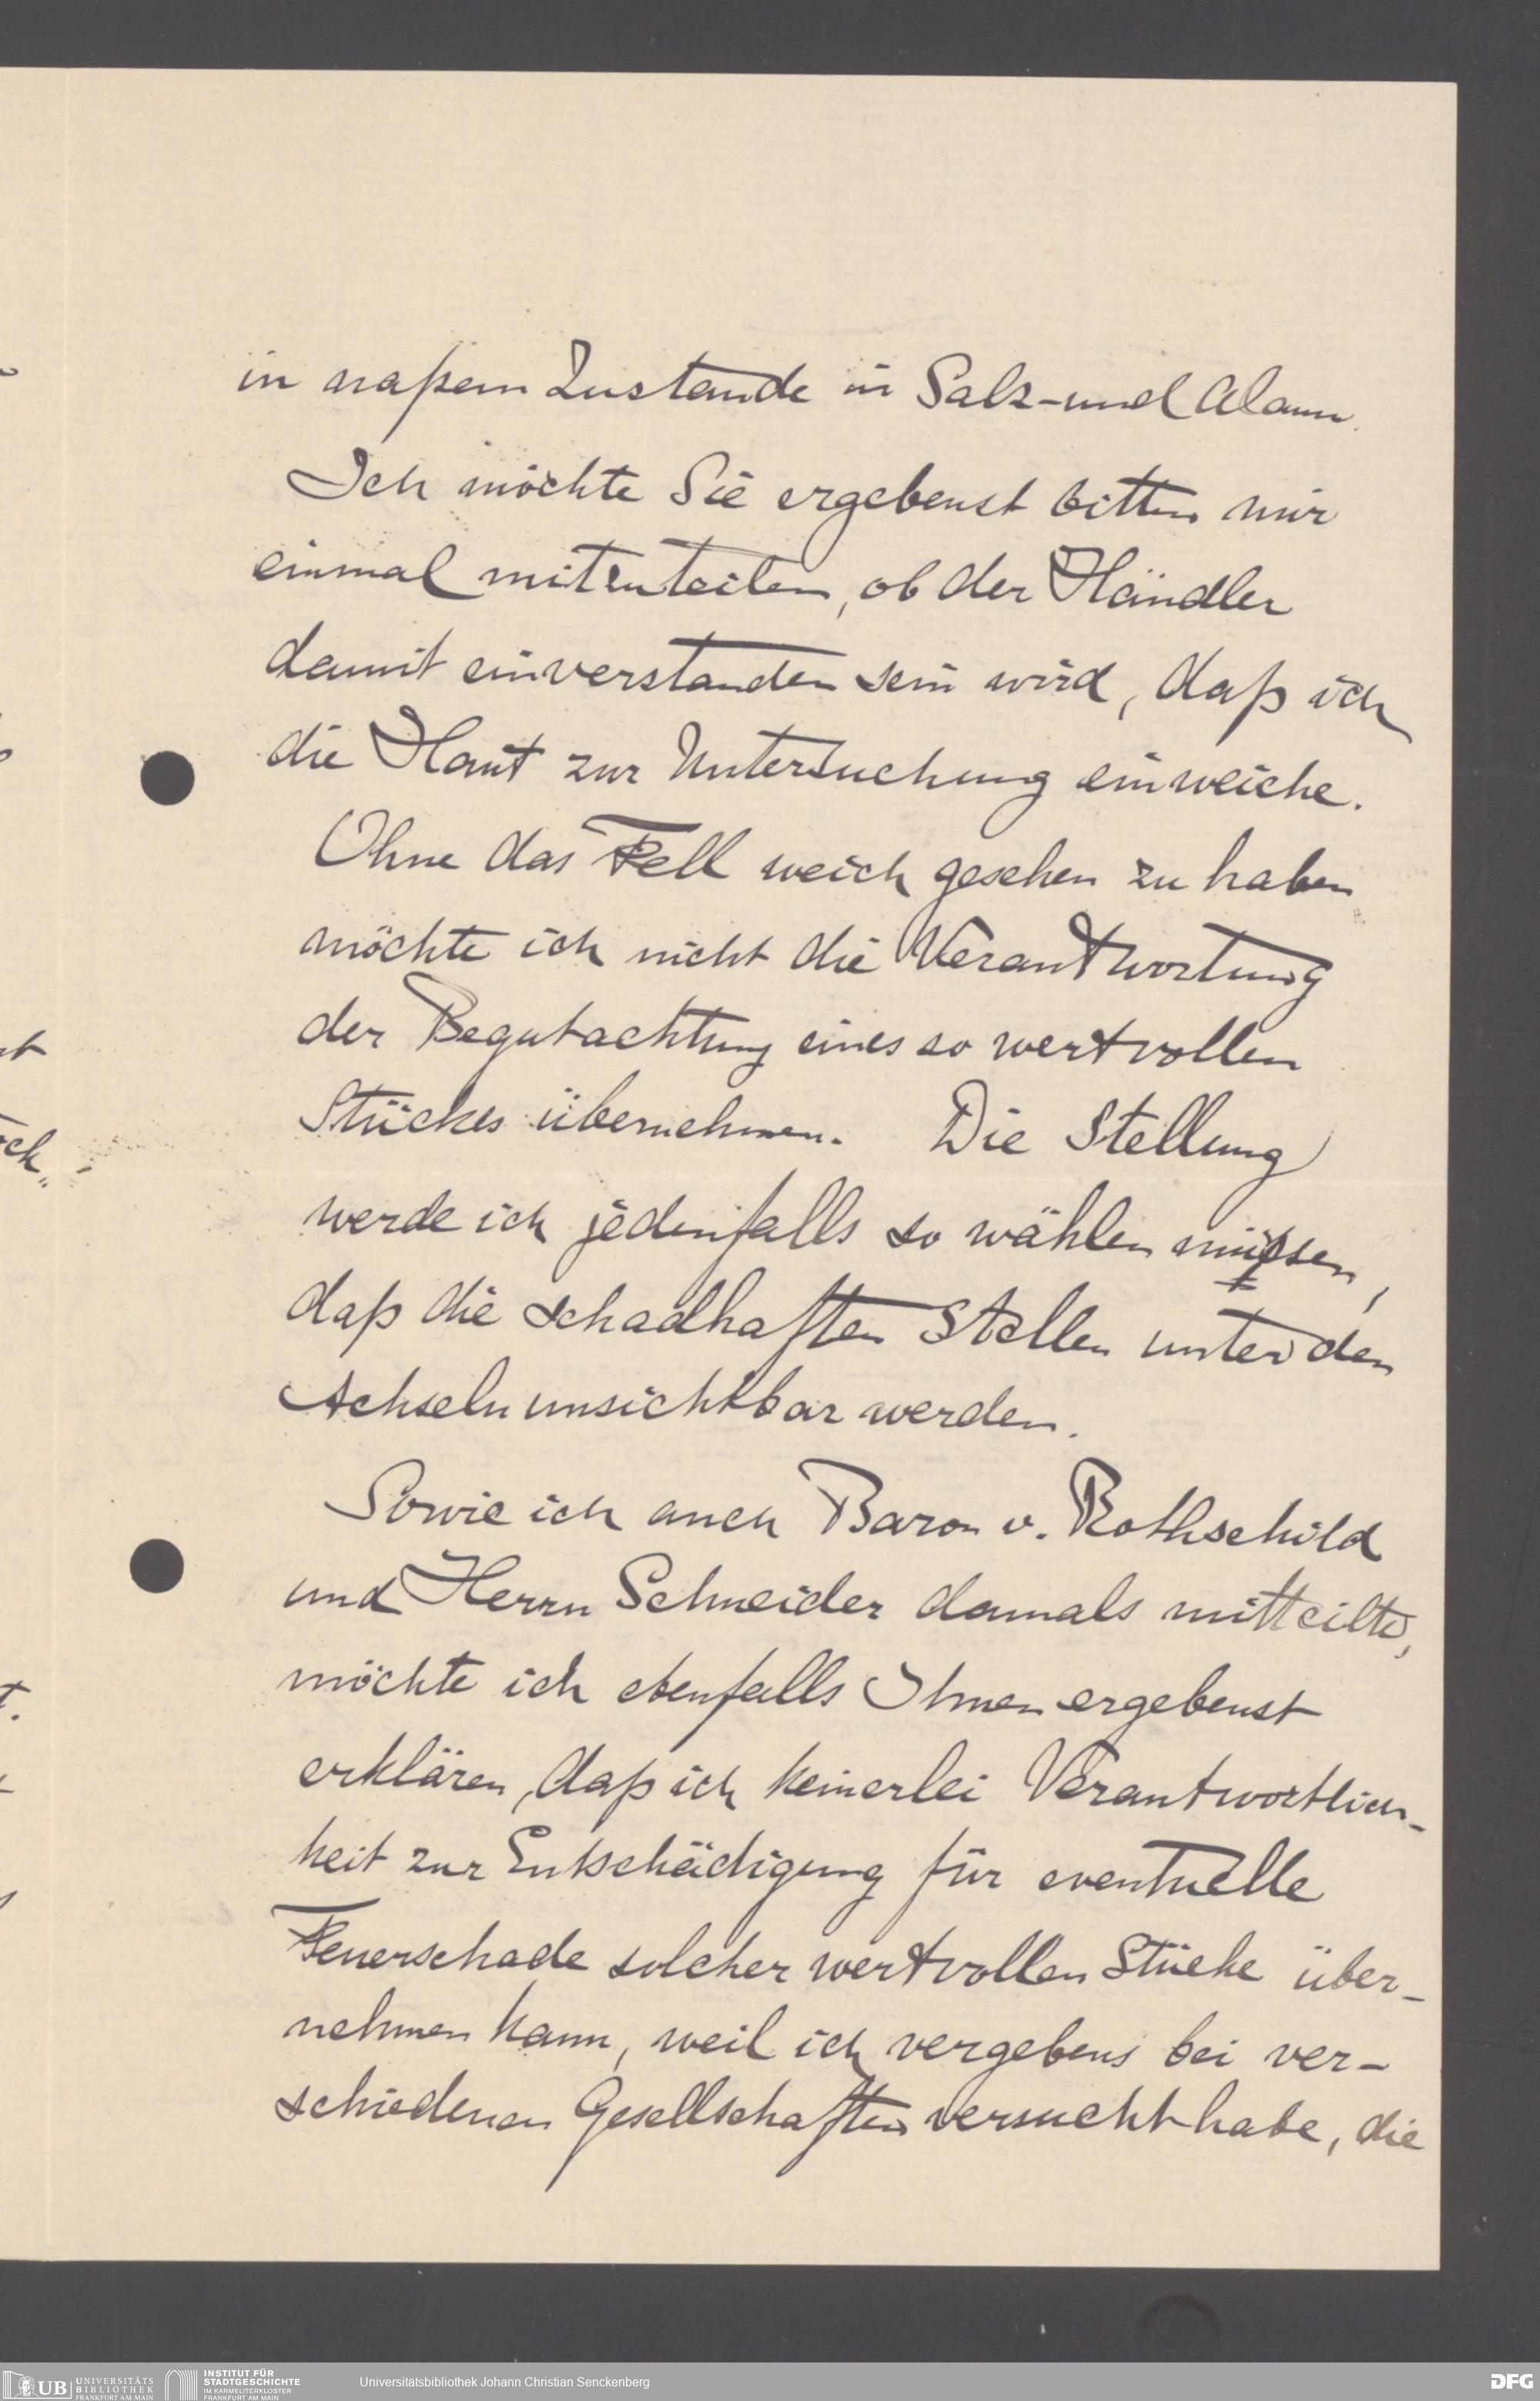 in naßem Zustande in Salz- und Alaun.
Ich möchte Sie ergebenst bitten mir
einmal mitzuteilen, ob der Händler
damit einverstanden sein wird, daß ich
die Haut zur Untersuchung einweiche.
Ohne das Fell weich gesehen zu haben
möchte ich nicht die Verantwortung
der Begutachtung eines so wertvollen
Stückes übernehmen. Die Stellung
werde ich jedenfalls so wählen müssen,
daß die schadhaften Stellen unter den
Achseln unsichtbar werden.
Sowie ich auch Baron v. Rothschild
und Herrn Schneider damals mitteilte,
möchte ich ebenfalls Ihnen ergebenst
erklären, daß ich keinerlei Verantwortlich-
keit zur Entschädigung für eventuelle
Feuerschade solcher wertvollen Stücke über-
nehmen kann, weil ich vergebens bei ver-
schiedenen Gesellschaften versucht habe, die
UB UNIVERSITÄTS BIBLIOTHEK FRANKFURT AM MAIN
INSTITUT FÜR STADTGESCHICHTE IM KARMELITERKLOSTER FRANKFURT AM MAIN
Universitätsbibliothek Johann Christian Senckenberg
DFG